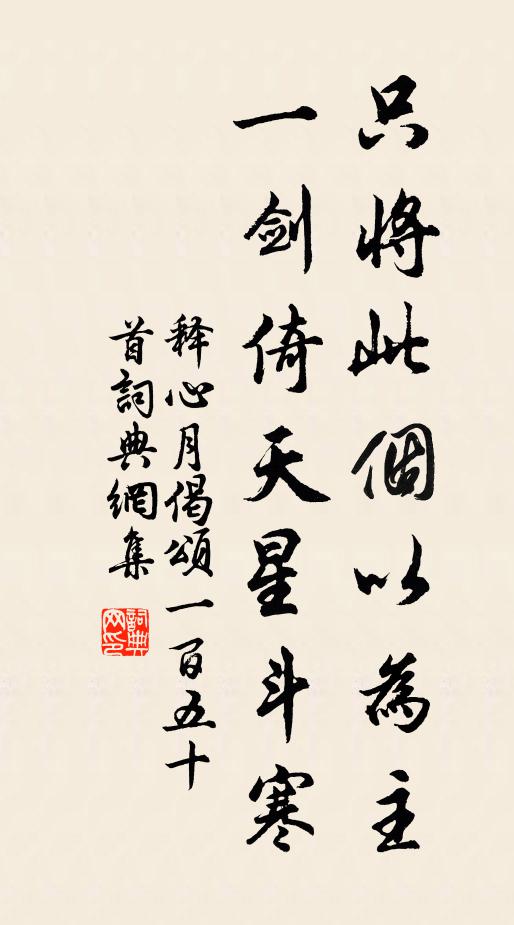 只將此個以為主
一劍倚天星斗寒
释心月偈頌一百五十
首詞典網集
詞典网印